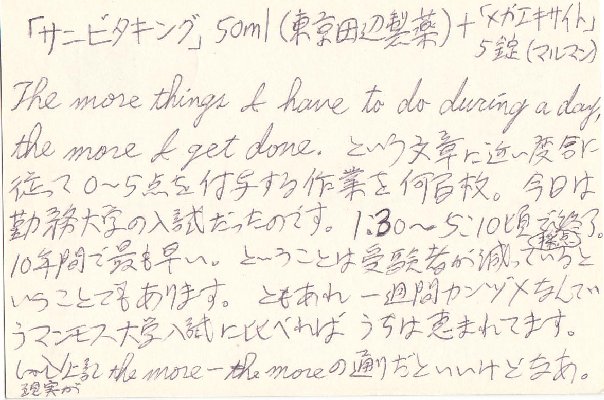 「サニービタキング」50ml(東京田辺製薬)+「メガエキサイト」
5錠(マルマン)
The more things I have to do during a day,
the more I get done. という文章に近い度合に
従って0〜5点を付与する作業を何百枚。今日は
勤務大学の入試だったのです。1:30〜5:10頃で終了。
採点
10年間で最も早い。ということは受験者が減っていると
いうことでもあります。ともあれ一週間カンヅメなんてい
うマンモス大学入試に比べれば うちは恵まれてます。
しかし上記 the more—the moreの通りだといいけどなあ。
現実が